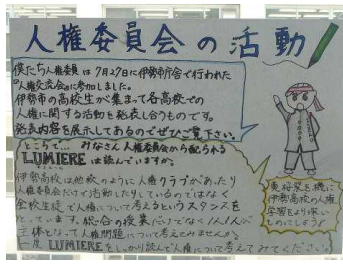 人権委員会の活動
僕たち人権委員は7月27日に伊勢市庁舎で行われた
"人権交流会"に参加しました。
伊勢市の高校生が集まって各高校での
人権に関する活動を発表し合うものです。
発表内容を展示してあるのでぜひご覧下さい。
ところで… みなさん人権委員会から配られる
LUMIEREは読んでいますか。
伊勢高校は他校のように人権クラブがあったり
人権委員会だけで活動したりしているのではなく
全校生徒で人権について考えるというスタンスを
とっています。総合の授業だけでなく1人1人が
主体となって人権問題について考えてみませんか。
一度LUMIEREをしっかり読んで人権について考えてみてください。
を機に
伊勢高校の人権
学習をより深い
ものにしよう!